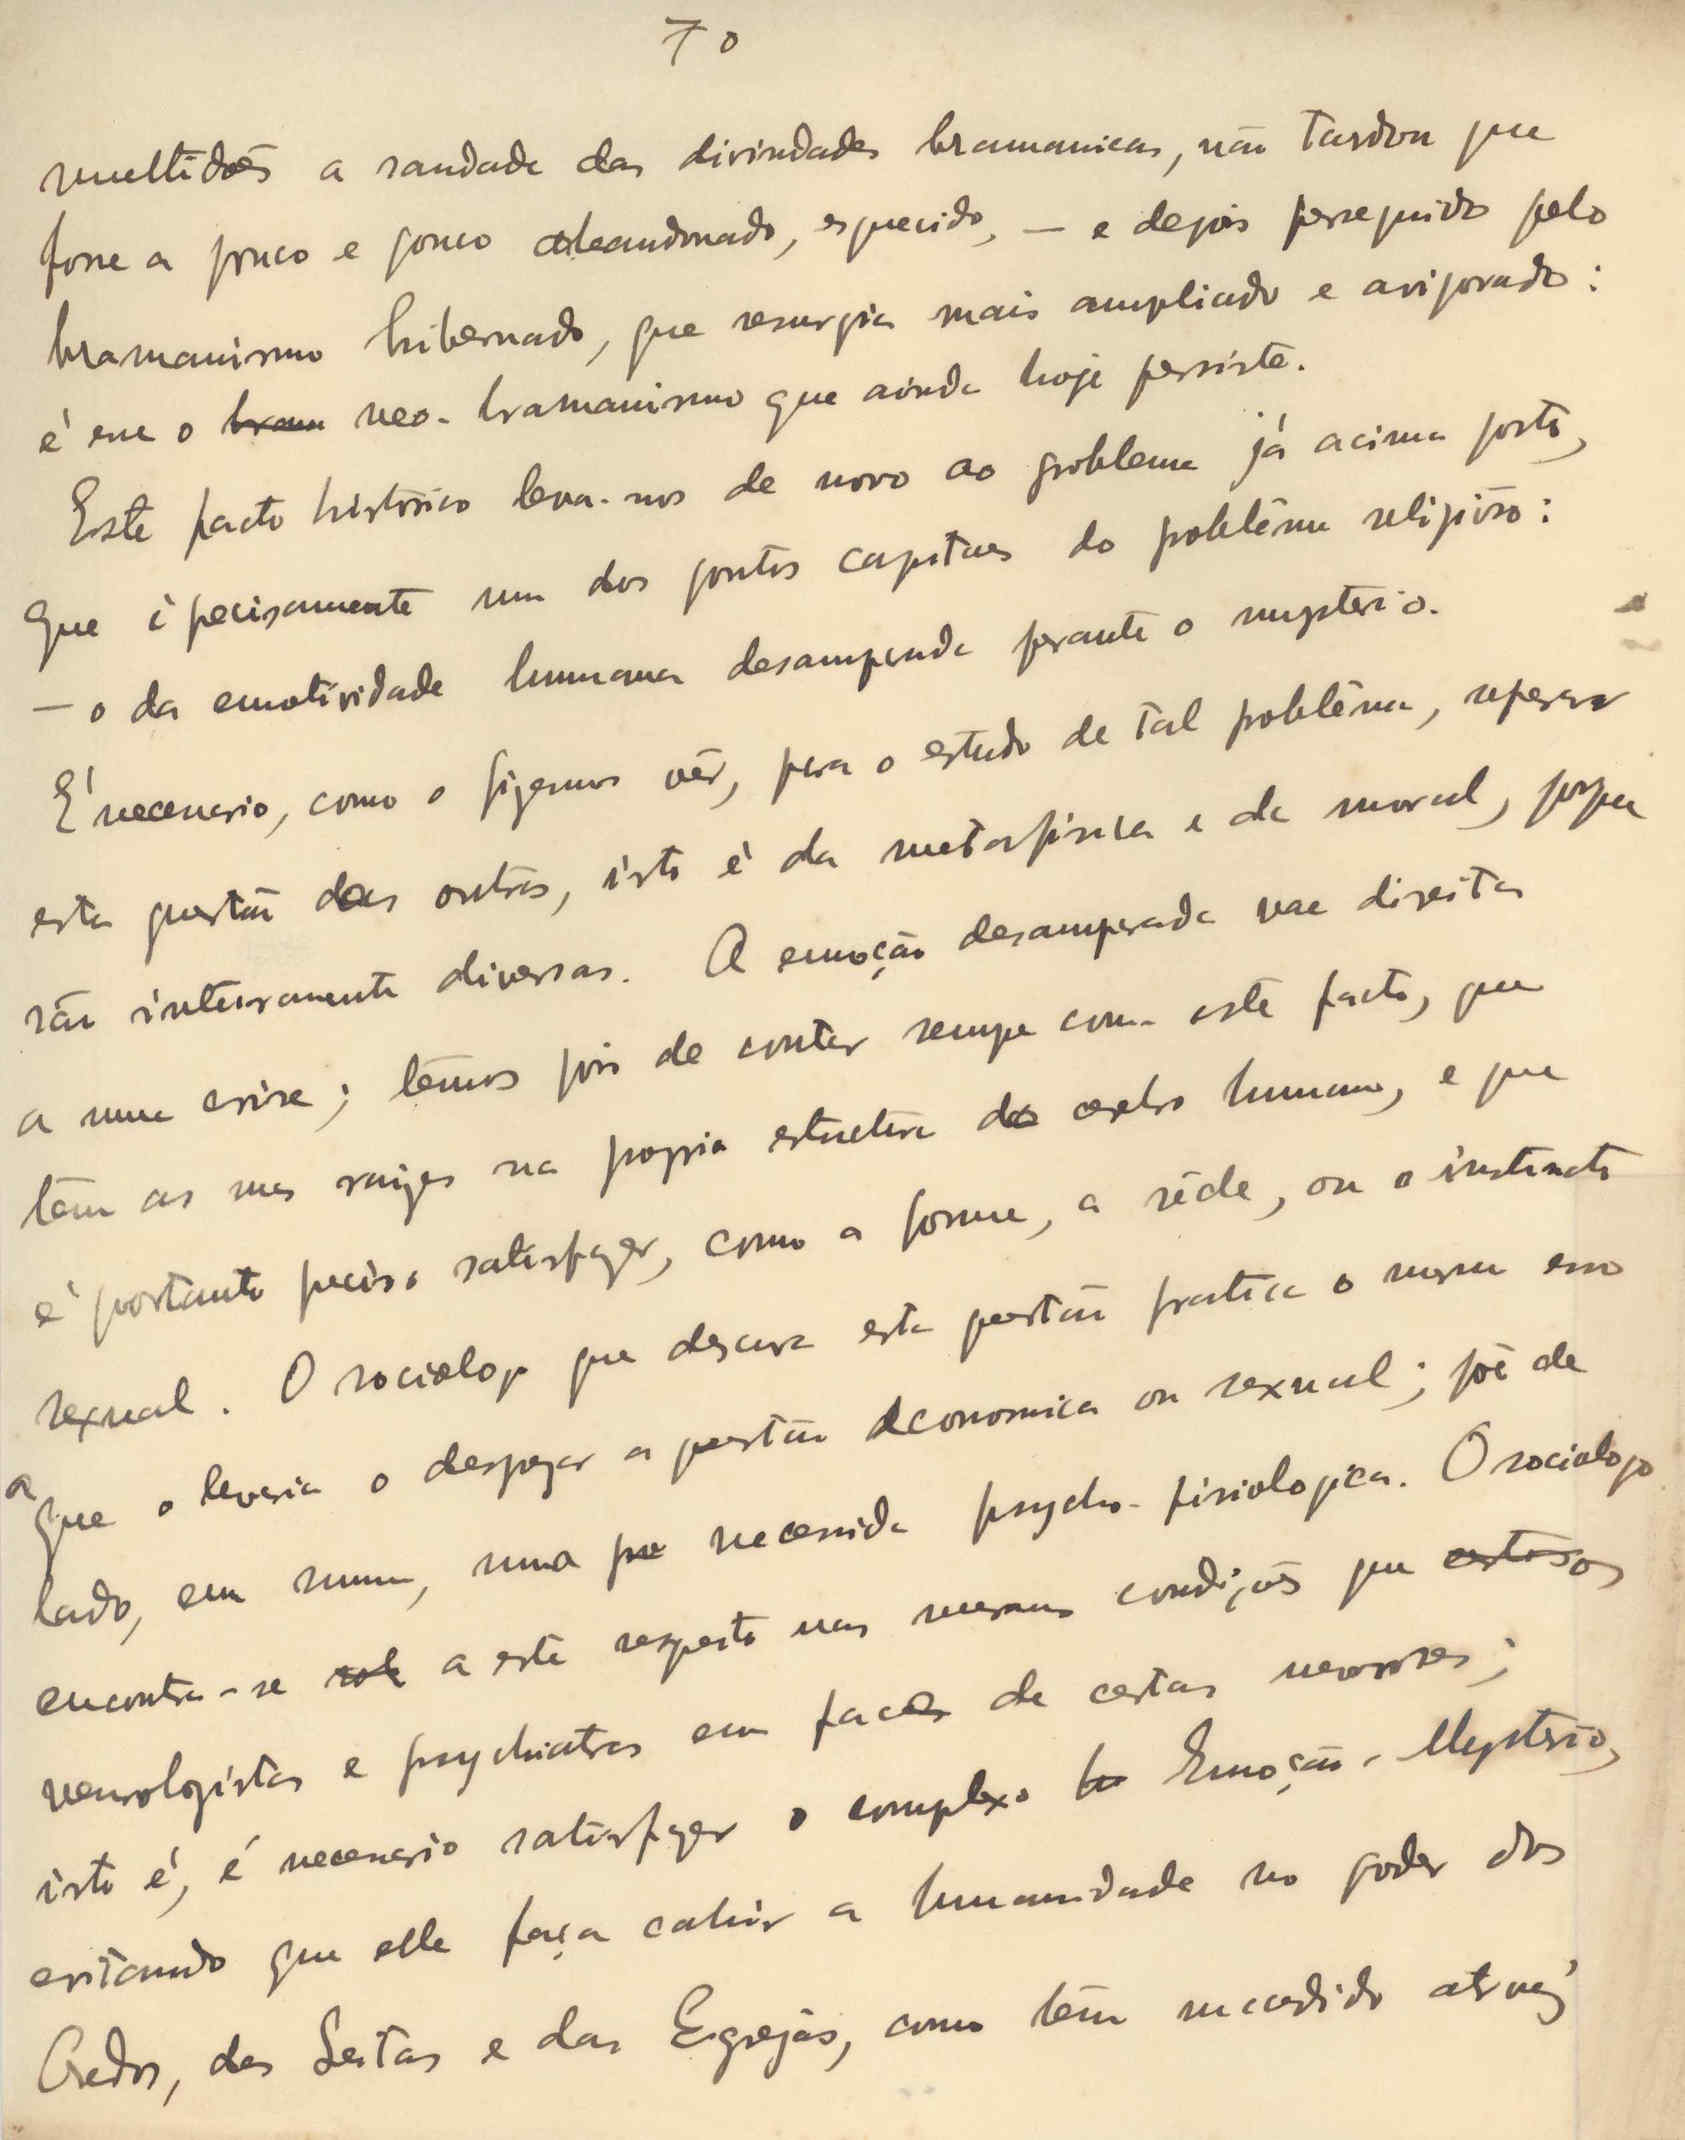 70
multidões a saudade das divindades bramanicas, não tardou que
fosse a pouco e pouco abandonado, esquecido, — e depois perseguido pelo
bramanismo hibernado, que resurgia mais ampliado e avigorado:
é esse o bram neo-bramanismo que ainda hoje persiste.
Este facto histórico leva-nos de novo ao problema já acima posto,
que é precisamente um dos pontos capitaes do problêma religiôso:
— o da emotividade humana desamparada perante o mysterio.
É necessario, como o fizemos vêr, para o estudo de tal problêma, separar
esta questão das outras, isto é da metafisica e da moral, porque
são inteiramente diversas. A emoção desamparada vae direita
a uma crise; têmos pois de contar sempre com este facto, que
têm as suas raizes na propria estructura do cerebro humano, e que
é portanto preciso satisfazer, como a fome, a sêde, ou o instincto
sexual. O sociologo que descura esta questão pratica o mesmo erro
a que o levaria o desprezar a questão economica ou sexual; põe de
lado, em suma, uma pre necessidade psycho-fisiologica. O sociologo
encontra-se sob a este respeito nas mesmas condições que estes os
neurologistas e psychiatras em face de certas nevroses;
isto é, é necessario satisfazer o complexo Emoção-Mysterio,
evitando que elle faça cahir a humanidade no poder dos
Credos, das Seitas e das Egrejas, como têm succedido atravez